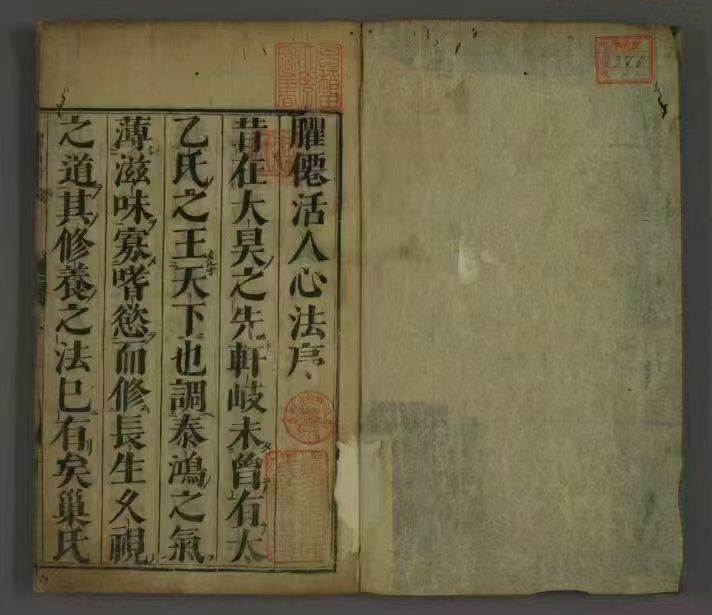 臞僊活人心法序
昔在大昊之先軒岐未曾有太
乙氏之王天下也調泰鴻之氣
薄滋味寡嗜慾而修長生久視
之道其修養之法已有矣巢氏